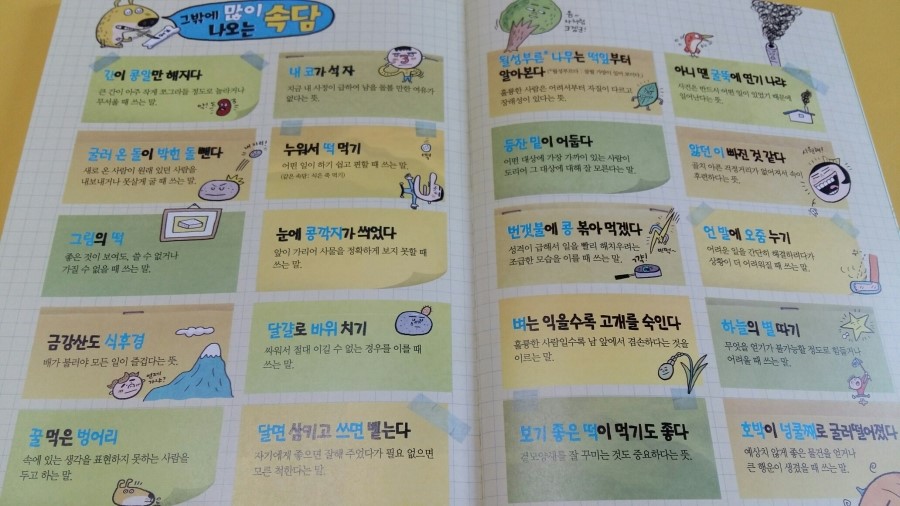 그밖에 많이
나오는 속담
간이 콩알만 해지다
큰 간이 아주 작게 쪼그라들 정도로 놀라거나
무서울 때 쓰는 말.
내 코가 석 자
지금 내 사정이 급하여 남을 돌볼 만한 여유가
없다는 뜻.
굴러 온 돌이 박힌 돌 뺀다
새로 온 사람이 원래 있던 사람을
내보내거나 못살게 굴 때 쓰는 말.
누워서 떡 먹기
어떤 일이 하기 쉽고 편할 때 쓰는 말.
(같은 속담 : 식은 죽 먹기)
그림의 떡
좋은 것이 보여도, 쓸 수 없거나
가질 수 없을 때 쓰는 말.
눈에 콩깍지가 씌었다
앞이 가리어 사물을 정확하게 보지 못할 때
쓰는 말.
금강산도 식후경
배가 불러야 모든 일이 즐겁다는 뜻.
달걀로 바위 치기
싸워서 절대 이길 수 없는 경우를 이를 때
쓰는 말.
꿀 먹은 벙어리
속에 있는 생각을 표현하지 못하는 사람을
두고 하는 말.
달면 삼키고 쓰면 뱉는다
자기에게 좋으면 잘해 주었다가 필요 없으면
모른 척한다는 말.
될성부른* 나무는 떡잎부터
알아본다
훌륭한 사람은 어려서부터 자질이 다르고
장래성이 있다는 뜻.
아니 땐 굴뚝에 연기 나랴
사건은 반드시 어떤 일이 있었기 때문에
일어난다는 뜻.
등잔 밑이 어둡다
어떤 대상에 가장 가까이 있는 사람이
도리어 그 대상에 대해 잘 모른다는 말.
앓던 이 빠진 것 같다
골치 아픈 걱정거리가 없어져서 속이
후련하다는 뜻.
번갯불에 콩 볶아 먹겠다
성격이 급해서 일을 빨리 해치우려는
조급한 모습을 이를 때 쓰는 말.
언 발에 오줌 누기
어려운 일을 간단히 해결하려다가
상황이 더 어려워질 때 쓰는 말.
벼는 익을수록 고개를 숙인다
훌륭한 사람일수록 남 앞에서 겸손하다는 것을
이르는 말.
하늘의 별 따기
무엇을 얻기가 불가능할 정도로 힘들거나
어려울 때 쓰는 말.
보기 좋은 떡이 먹기도 좋다
겉모양새를 잘 꾸미는 것도 중요하다는 뜻.
호박이 넝쿨째로 굴러떨어졌다
예상치 않게 좋은 물건을 얻거나
큰 행운이 생겼을 때 쓰는 말.